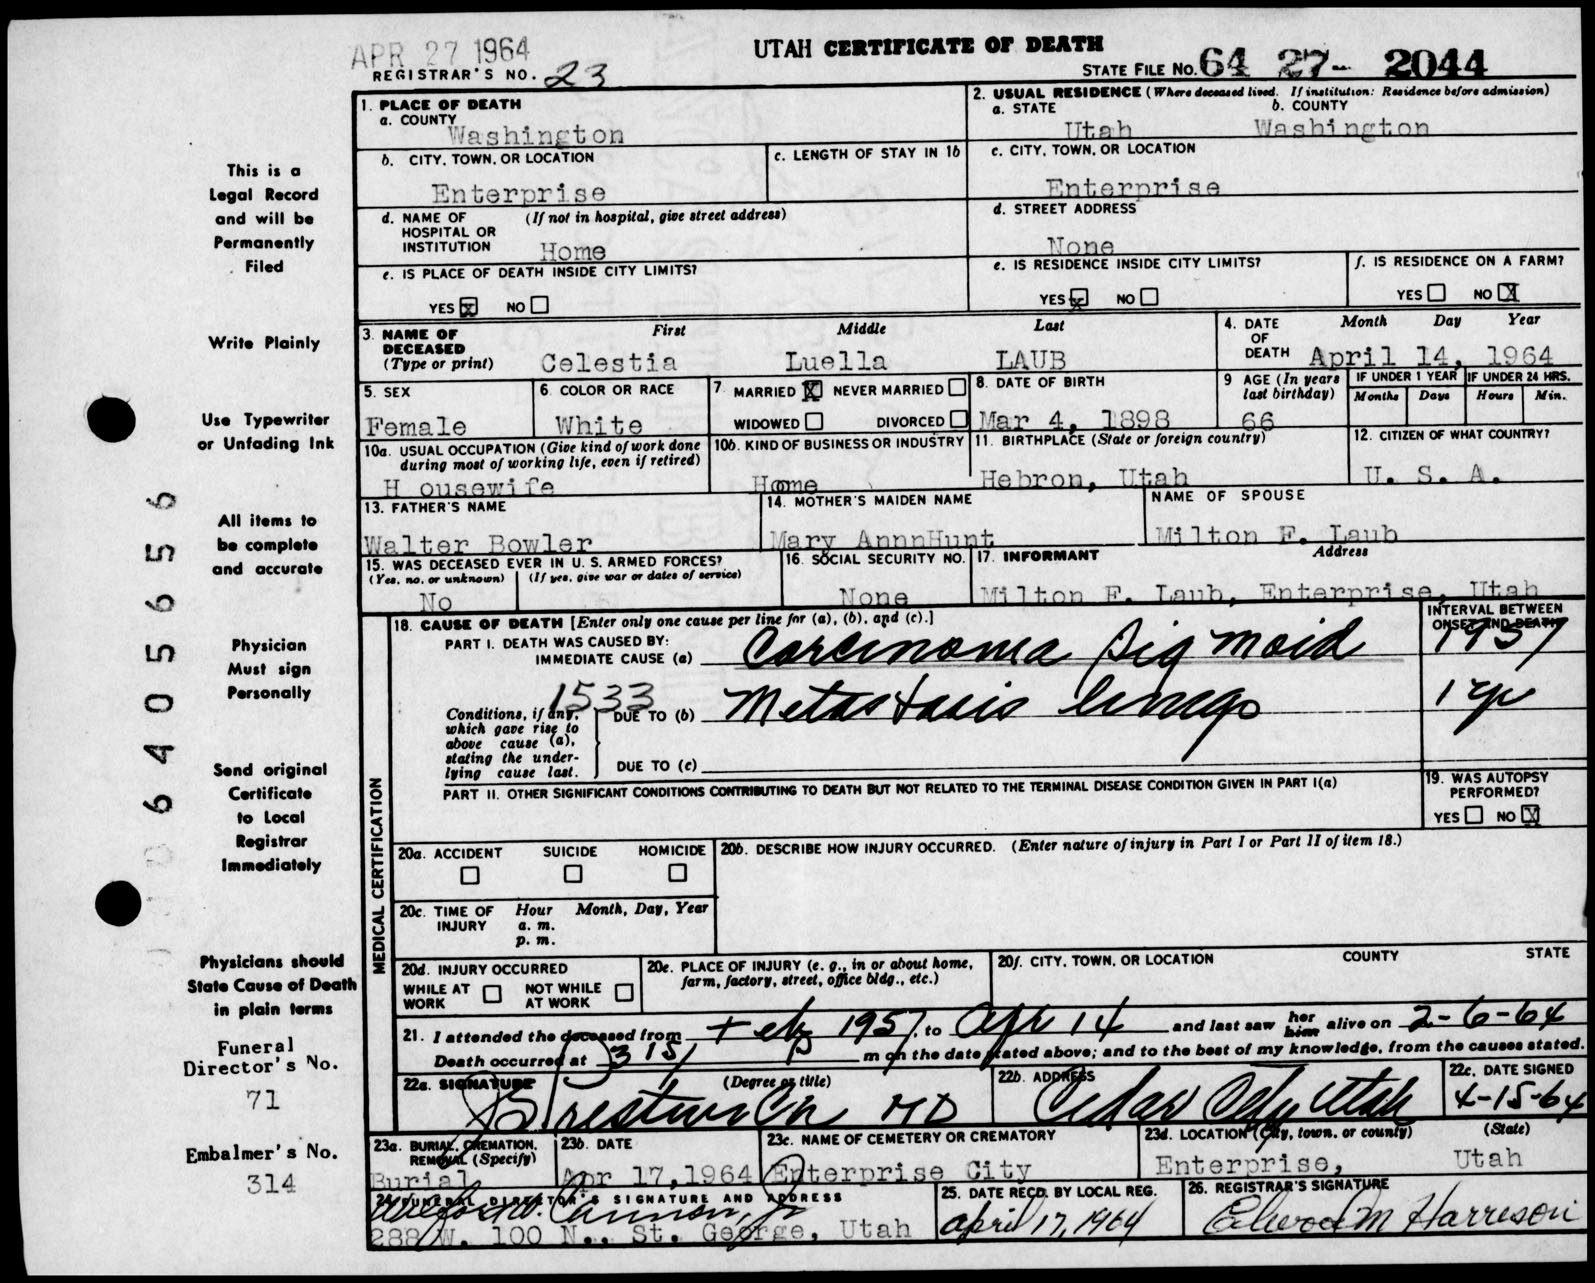 APR 27 1964
UTAH CERTIFICATE OF DEATH
REGISTRAR'S NO. 23
STATE FILE NO. 64 27- 2044
1. PLACE OF DEATH
a. COUNTY
Washington
2. USUAL RESIDENCE (Where deceased lived. If institution: Residence before admission)
a. STATE b. COUNTY
Utah Washington
b. CITY, TOWN, OR LOCATION
Enterprise
c. LENGTH OF STAY IN 1b
c. CITY, TOWN, OR LOCATION
Enterprise
d. NAME OF (If not in hospital, give street address)
HOSPITAL OR
INSTITUTION Home
d. STREET ADDRESS
None
e. IS PLACE OF DEATH INSIDE CITY LIMITS?
YES X NO
e. IS RESIDENCE INSIDE CITY LIMITS?
YES X NO
f. IS RESIDENCE ON A FARM?
YES NO X
3. NAME OF First Middle Last
DECEASED
(Type or print) Celestia Luella LAUB
4. DATE Month Day Year
OF
DEATH April 14, 1964
5. SEX
Female
6. COLOR OR RACE
White
7. MARRIED X NEVER MARRIED
WIDOWED DIVORCED
8. DATE OF BIRTH
Mar 4, 1898
9 AGE (In years
last birthday)
66
IF UNDER 1 YEAR IF UNDER 24 HRS.
Months Days Hours Min.
10a. USUAL OCCUPATION (Give kind of work done
during most of working life, even if retired)
H ousewife
10b. KIND OF BUSINESS OR INDUSTRY
Home
11. BIRTHPLACE (State or foreign country)
Hebron, Utah
12. CITIZEN OF WHAT COUNTRY?
U. S. A.
13. FATHER'S NAME
Walter Bowler
14. MOTHER'S MAIDEN NAME
Mary AnnnHunt
NAME OF SPOUSE
Milton F. Laub
15. WAS DECEASED EVER IN U. S. ARMED FORCES?
(Yes, no, or unknown) (If yes, give war or dates of service)
No
16. SOCIAL SECURITY NO.
None
17. INFORMANT Address
Milton F. Laub, Enterprise, Utah
18. CAUSE OF DEATH [Enter only one cause per line for (a), (b), and (c).]
INTERVAL BETWEEN
ONSET AND DEATH
PART I. DEATH WAS CAUSED BY:
IMMEDIATE CAUSE (a) Carcinoma Sigmoid 1957
1533
Conditions, if any,
which gave rise to
above cause (a),
stating the under-
lying cause last.
DUE TO (b) Metastasis lungs 1 yr
DUE TO (c)
PART II. OTHER SIGNIFICANT CONDITIONS CONTRIBUTING TO DEATH BUT NOT RELATED TO THE TERMINAL DISEASE CONDITION GIVEN IN PART I(a)
19. WAS AUTOPSY
PERFORMED?
YES NO X
MEDICAL CERTIFICATION
20a. ACCIDENT SUICIDE HOMICIDE
20b. DESCRIBE HOW INJURY OCCURRED. (Enter nature of injury in Part I or Part II of item 18.)
20c. TIME OF Hour Month, Day, Year
INJURY a. m.
p. m.
20d. INJURY OCCURRED
WHILE AT NOT WHILE
WORK AT WORK
20e. PLACE OF INJURY (e. g., in or about home,
farm, factory, street, office bldg., etc.)
20f. CITY, TOWN, OR LOCATION COUNTY STATE
21. I attended the deceased from Feb 1957, to Apr 14 and last saw her him alive on 2-6-64
Death occurred at 315 P m on the date stated above; and to the best of my knowledge, from the causes stated.
22a. SIGNATURE (Degree or title)
MD
22b. ADDRESS
Cedar City Utah
22c. DATE SIGNED
4-15-64
23a. BURIAL, CREMATION,
REMOVAL (Specify)
Burial
23b. DATE
Apr 17, 1964
23c. NAME OF CEMETERY OR CREMATORY
Enterprise City
23d. LOCATION (City, town, or county) (State)
Enterprise, Utah
24. FUNERAL DIRECTOR'S SIGNATURE AND ADDRESS
Cannon, Jr
288 W. 100 N., St. George, Utah
25. DATE RECD. BY LOCAL REG.
April 17, 1964
26. REGISTRAR'S SIGNATURE
Elwood M Harrison
This is a
Legal Record
and will be
Permanently
Filed
Write Plainly
Use Typewriter
or Unfading Ink
All items to
be complete
and accurate
Physician
Must sign
Personally
Send original
Certificate
to Local
Registrar
Immediately
Physicians should
State Cause of Death
in plain terms
Funeral
Director's No.
71
Embalmer's No.
314